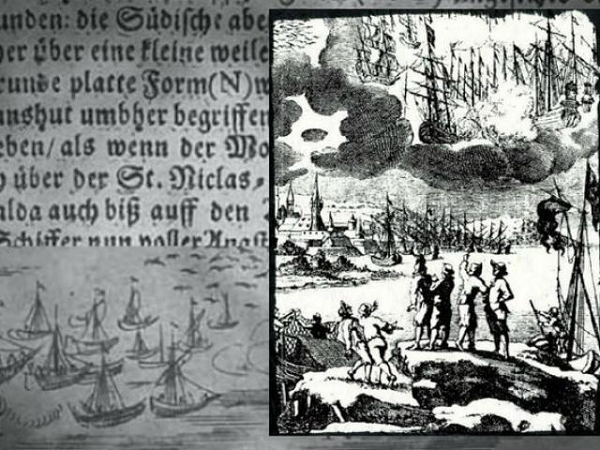 unden: die Südische abe
er über eine kleine weile
runde platte Form(N)w
anshut umbher begriffen
eben/ als wenn der Mo
über der St. Niclas-
alda auch biß auff den
Schiffer nun voller Angst